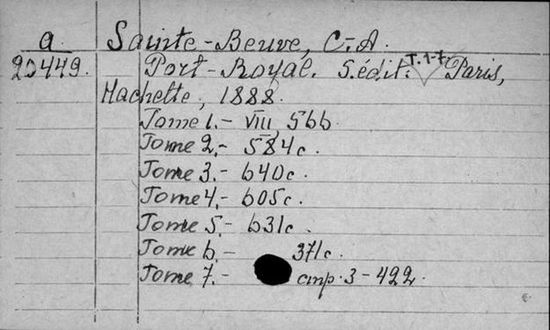 a Sainte-Beuve, C.-A.
20449. Port-Royal. 5.édit. T.1-7 Paris,
Hachette, 1888.
Tome 1.- VIII, 566
Tome 2.- 584c.
Tome 3.- 640c.
Tome 4.- 605c.
Tome 5.- 631c.
Tome 6.- 371c.
Tome 7.- стр. 3-422.